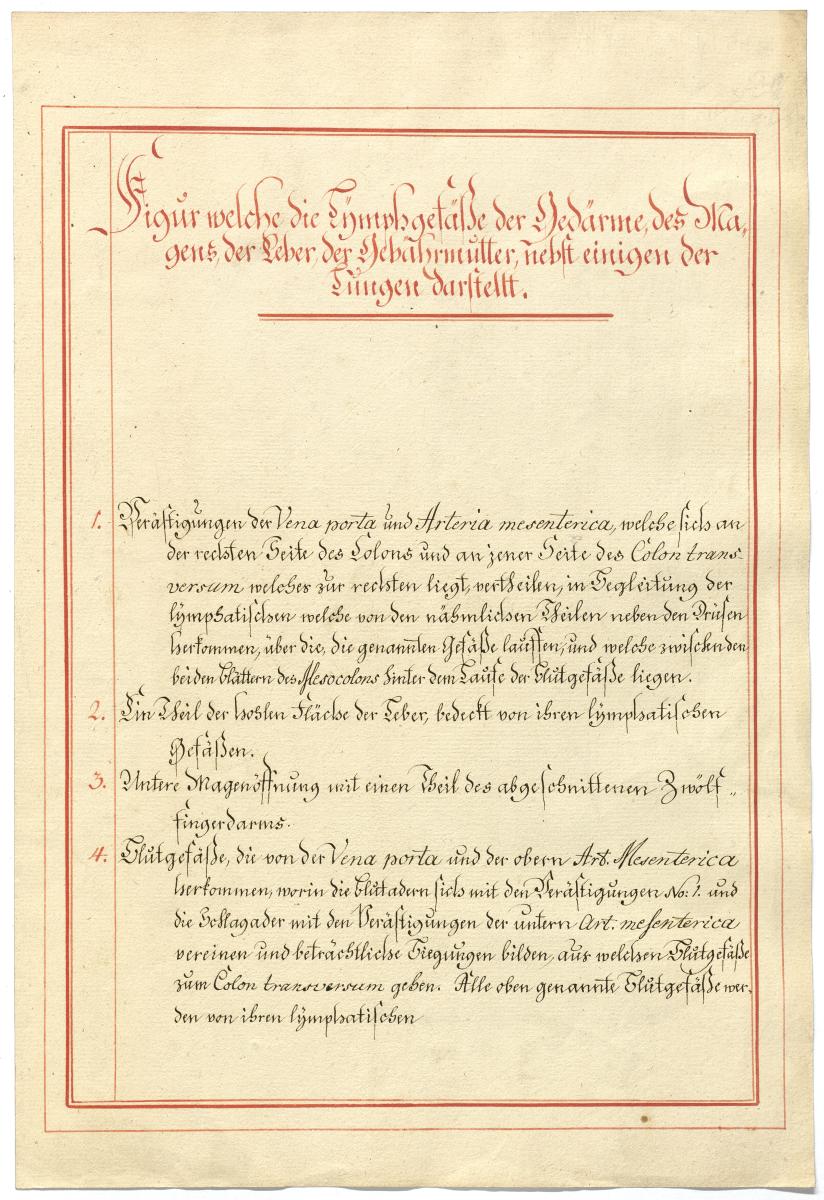 Figur welche die Lÿmphgefäße der Gedärme, des Ma„
gens, der Leber, der Gebährmutter, nebst einigen der
Lungen darstellt.
1. Verästigungen der Vena porta und Arteria mesenterica, welche sich an
der rechten Seite des Colons und an jener Seite des Colon trans-
versum welches zur rechten liegt, vertheilen, in Begleitung der
lymphatischen welche von den nähmlichen Theilen neben den Drüsen
herkommen, über die, die genannten Gefäße lauffen, und welche zwischen den
beiden blättern des Mesocolons hinter dem Laufe der Blutgefäße liegen.
2. Ein Theil der hohlen Fläche der Leber, bedeckt von ihren lÿmphatischen
Gefäßen.
3. Untere Magenöffnung mit einen Theil des abgeschnittenen Zwölf„
fingerdarms.
4. Blutgefäße, die von der Vena porta und der obern Art. Mesenterica
herkommen, worin die blutadern sich mit den Verästigungen No: 1. und
die Schlagader mit den Verästigungen der untern Art. mesenterica
vereinen und beträchtliche Biegungen bilden, aus welchen Blutgefäße
zum Colon transversum gehen. Alle oben genannte Blutgefäße wer„
den von ihren lÿmphatischen